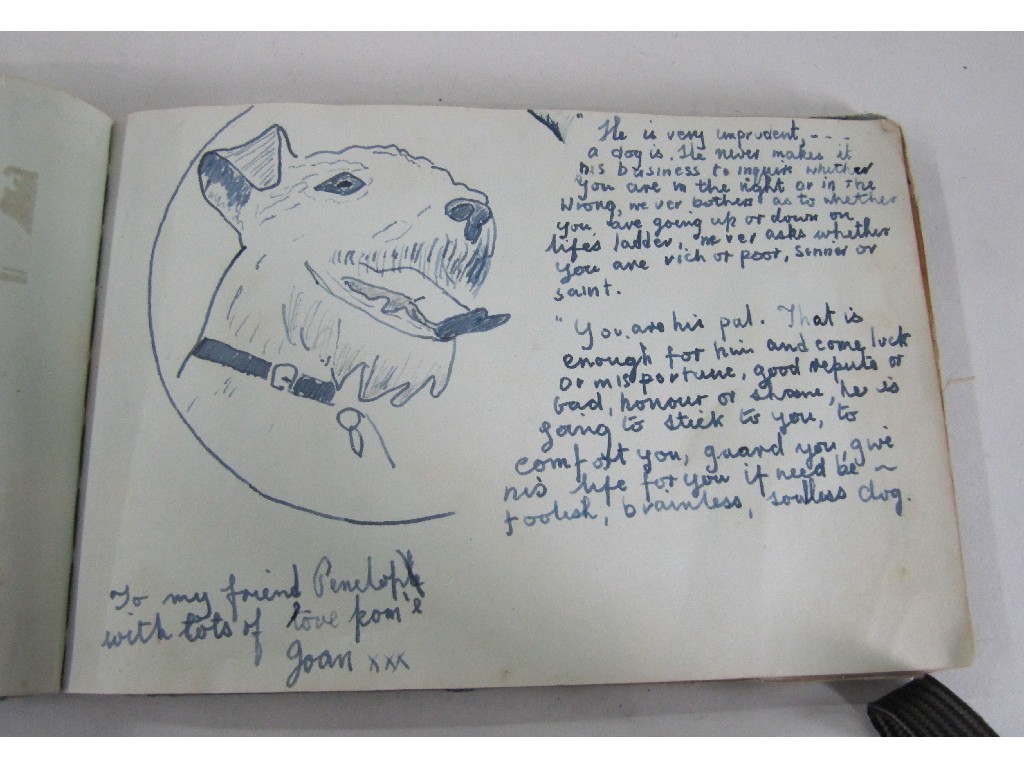 " He is very imprudent, - - - -
a dog is. He never makes it
his business to inquire whether
you are in the right or in the
wrong, never bothers as to whether
you are going up or down on
life's ladder, never asks whether
you are rich or poor, sinner or
saint.
" You are his pal. That is
enough for him and come luck
or misfortune, good repute or
bad, honour or shame, he is
going to stick to you, to
comfort you, guard you, give
his life for you if need be ~
foolish, brainless, soulless dog.
To my friend Penelope
with lots of love from
Joan xxx